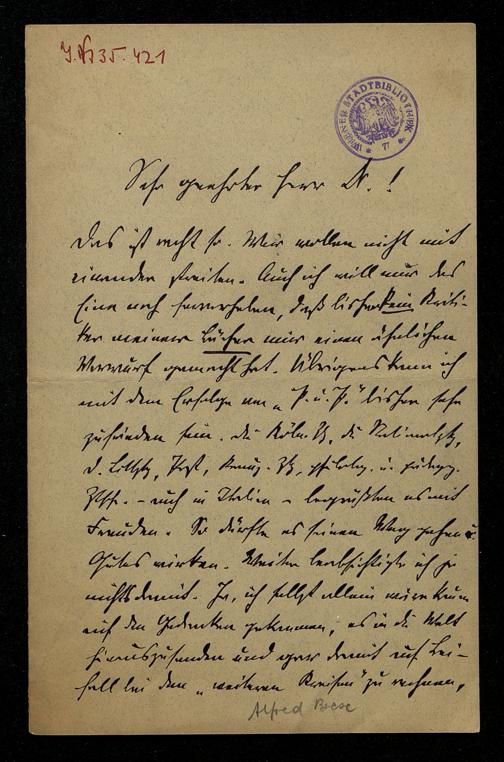 J.N 35.421
WIENER STADTBIBLIOTHEK
Sehr geehrter Herr D.!
Das ist recht so. Wir wollen nicht mit
einander streiten. Auch ich will nur das
Eine noch hervorheben, daß bisher kein Kriti-
ker meiner Bücher mir einen ähnlichen
Vorwurf gemacht hat. Übrigens kann ich
mit dem Erfolge von „P. u. P." bisher sehr
zufrieden sein. Die Köln. Ztg, die Nationalztg,
d. Post, Kreuz-Ztg, philolog. u. pädagog.
Ztschr. - auch in Italien - begrüßten es mit
Freuden. So dürfte es seinen Weg gehen u.
Gutes wirken. Weiter beabsichtigte ich ja
nichts damit. Ja, ich selbst allein wäre kaum
auf den Gedanken gekommen, es in die Welt
hinauszusenden und gar damit auf Bei-
fall bei den „weiteren Kreisen" zu rechnen,
Alfred Biese